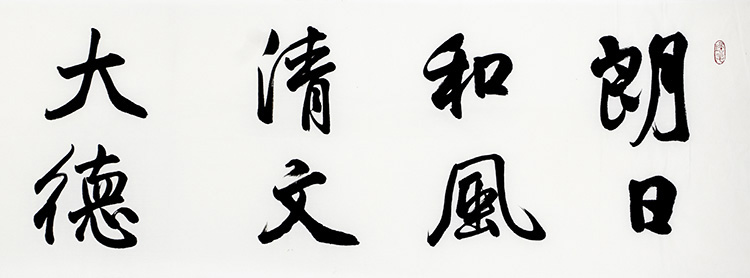 朗日
和風
清文
大德